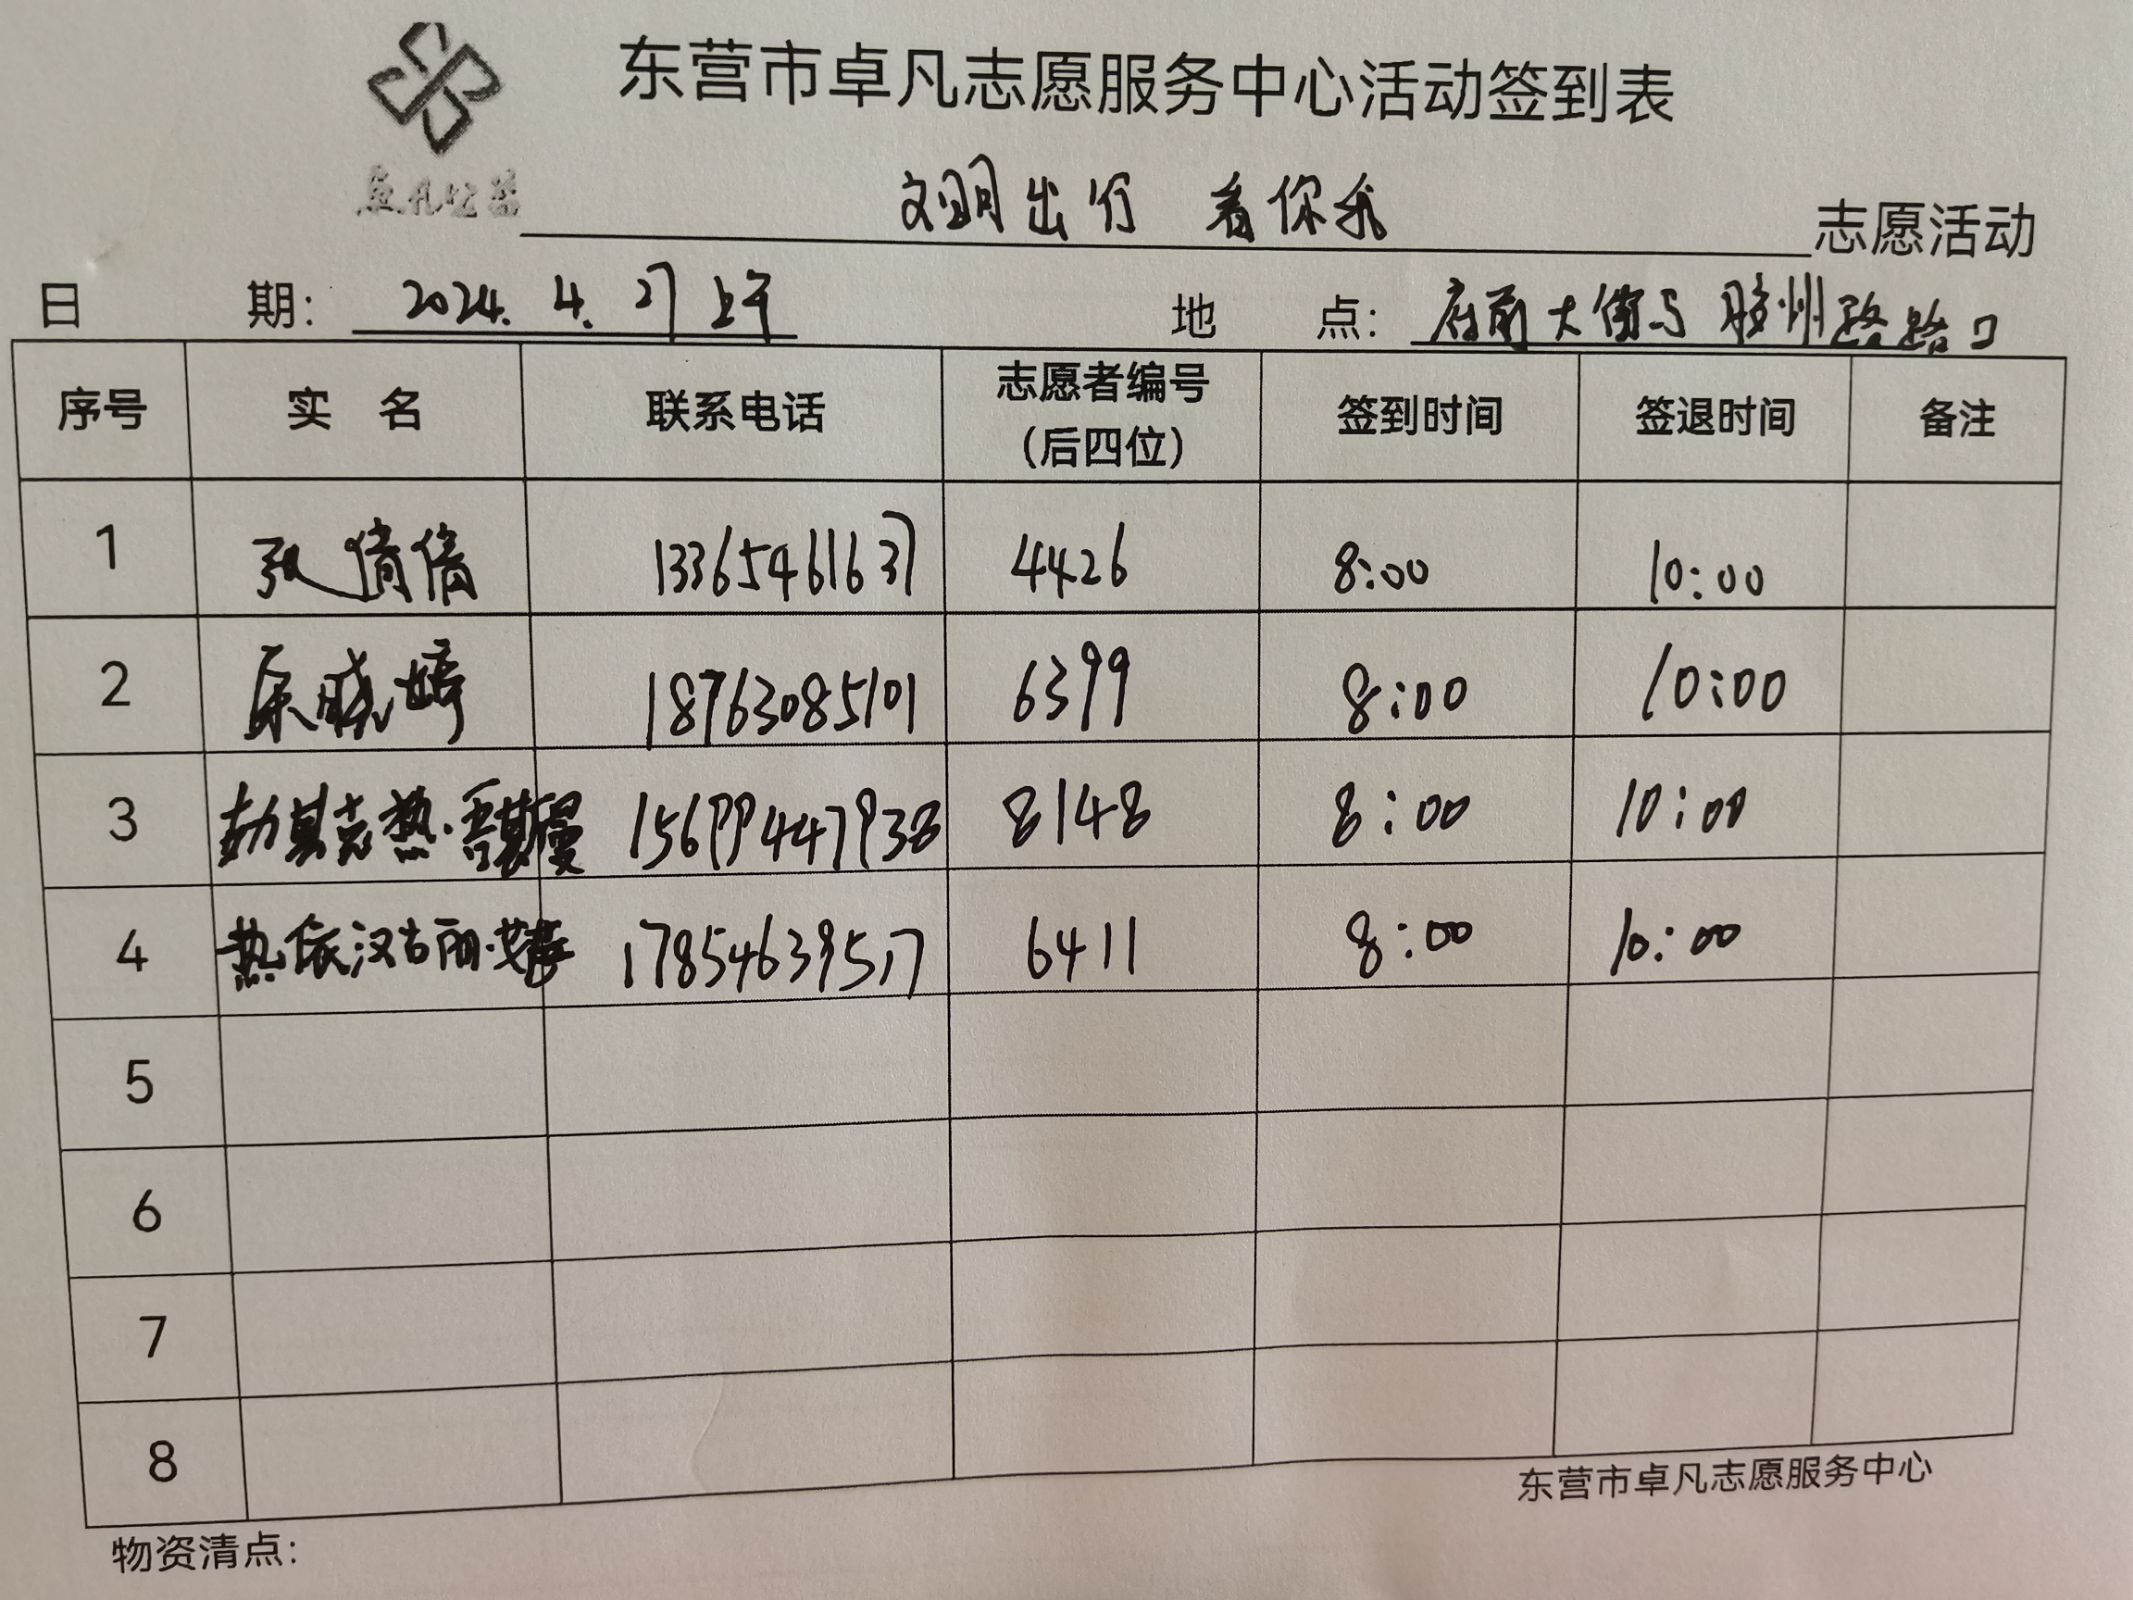 东营市卓凡志愿服务中心活动签到表
卓凡公益
文明出行 看你我 志愿活动
日 期: 2024. 4. 27 上午 地 点: 府前大街与胶州路路口
序号 实 名 联系电话 志愿者编号 (后四位) 签到时间 签退时间 备注
1 张倩倩 13365461637 4426 8:00 10:00
2 原晓婷 18763085101 6399 8:00 10:00
3 热·吾斯曼 15699447938 8148 8:00 10:00
4 热依汉古丽· 17854639517 6411 8:00 10:00
5
6
7
8
东营市卓凡志愿服务中心
物资清点: